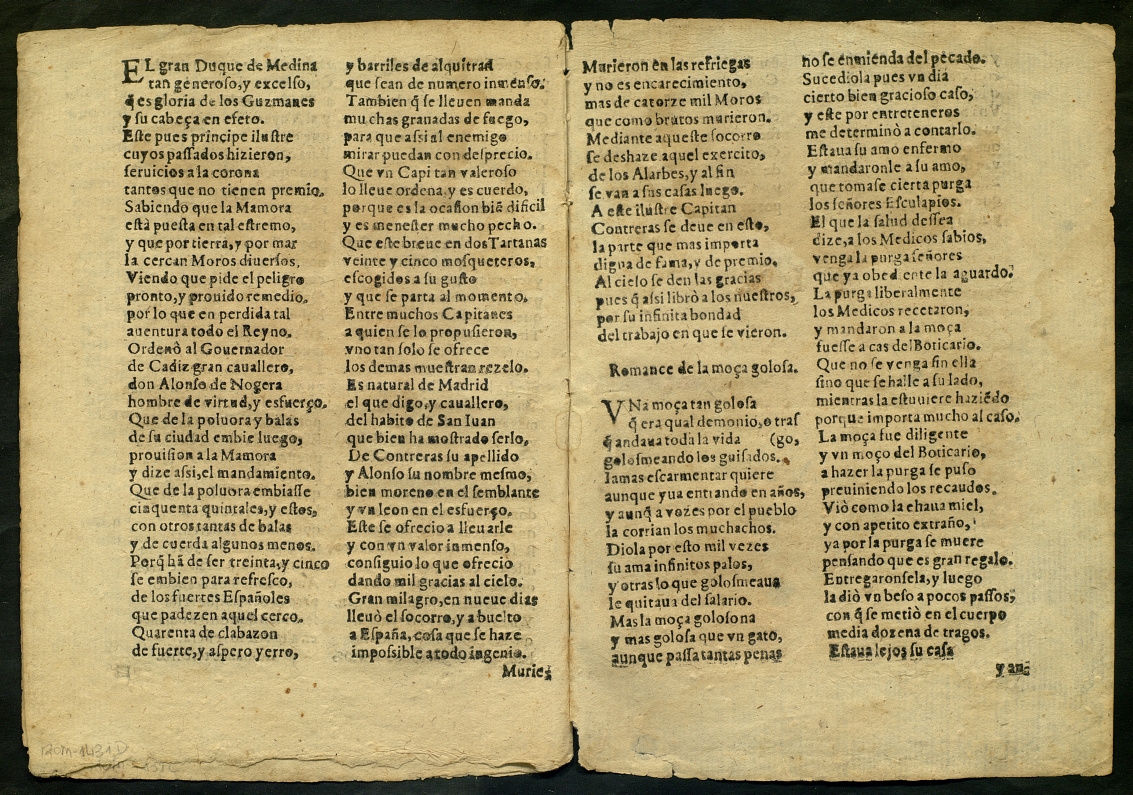 EL gran Duque de Medina
tan generoſo, y excelſo,
q̃ es gloria de los Guzmanes
y ſu cabeça en efeto.
Eſte pues principe iluſtre
cuyos paſſados hizieron,
ſeruicios a la corona
tantos que no tienen premio.
Sabiendo que la Mamora
eſtà pueſta en tal eſtremo,
y que por tierra, y por mar
la cercan Moros diuerſos.
Viendo que pide el peligro
pronto, y prouido remedio,
por lo que en perdida tal
auentura todo el Reyno.
Ordenò al Gouernador
de Cadiz gran cauallero,
don Alonſo de Nogera
hombre de virtud, y esfuerço.
Que de la poluora y balas
de ſu ciudad embie luego,
prouiſion a la Mamora
y dize aſsi, el mandamiento.
Que de la poluora embiaſſe
cinquenta quintales, y eſtos,
con otros tantas de balas
y de cuerda algunos menos.
Porq̃ hã de ſer treinta, y cinco
ſe embien para refreſco,
de los fuertes Eſpañoles
que padezen aquel cerco.
Quarenta de clabazon
de fuerte, y aſpero yerro,
y barriles de alquitran
que ſean de numero inmenſo.
Tambien q̃ ſe lleuen manda
muchas granadas de fuego,
para que aſsi al enemigo
mirar puedan con deſprecio.
Que vn Capitan valeroſo
lo lleue ordena, y es cuerdo,
porque es la ocaſion biẽ dificil
y es meneſter mucho pecho.
Que eſte breue en dos Tartanas
veinte y cinco moſqueteros,
eſcogidos a ſu guſto
y que ſe parta al momento.
Entre muchos Capitanes
a quien ſe lo propuſieron,
vno tan ſolo ſe ofrece
los demas mueſtran rezelo.
Es natural de Madrid
el que digo, y cauallero,
del habito de San Iuan
que bien ha moſtrado ſerlo.
De Contreras ſu apellido
y Alonſo ſu nombre meſmo,
bien moreno en el ſemblante
y vn leon en el esfuerço.
Eſte ſe ofrecio a lleuarle
y con vn valor inmenſo,
conſiguio lo que ofreciò
dando mil gracias al cielo.
Gran milagro, en nueue dias
lleuò el ſocorro, y a buelto
a Eſpaña, coſa que ſe haze
impoſsible a todo ingenio.
Murie-
Murieron en las refriegas
y no es encarecimiento,
mas de catorze mil Moros
que como brutos murieron.
Mediante aqueſte ſocorro
ſe deshaze aquel exercito,
de los Alarbes, y al fin
ſe van a ſus caſas luego.
A eſte iluſtre Capitan
Contreras ſe deue en eſto,
la parte que mas importa
digna de fama, y de premio.
Al cielo ſe den las gracias
pues q̃ aſsi librò a los nueſtros,
por ſu infinita bondad
del trabajo en que ſe vieron.
Romance de la moça goloſa.
VNa moça tan goloſa
q̃ era qual demonio, o traſ
q̃ andaua toda la vida (go,
goloſmeando los guiſados.
Iamas eſcarmentar quiere
aunque yua entrando en años,
y aunq̃ a vozes por el pueblo
la corrian los muchachos.
Diola por eſto mil vezes
ſu ama infinitos palos,
y otras lo que goloſmeaua
le quitaua del ſalario.
Mas la moça goloſona
y mas goloſa que vn gato,
aunque paſſa tantas penas
no ſe enmienda del pecado.
Sucediola pues vn dia
cierto bien gracioſo caſo,
y eſte por entreteneros
me determinò a contarlo.
Eſtaua ſu amo enfermo
y mandaronle a ſu amo,
que tomaſe cierta purga
los ſeñores Eſculapios.
El que la ſalud deſſea
dize, a los Medicos ſabios,
venga la purga ſeñores
que ya obediente la aguardo.
La purga liberalmente
los Medicos recetaron,
y mandaron a la moça
fueſſe a cas del Boticario.
Que no ſe venga ſin ella
ſino que ſe halle a ſu lado,
mientras la eſtuuiere haziẽdo
porque importa mucho al caſo.
La moça fue diligente
y vn moço del Boticario,
a hazer la purga ſe puſo
preuiniendo los recaudos.
Viò como la echaua miel,
y con apetito eſtraño,
ya por la purga ſe muere
penſando que es gran regalo.
Entregaronſela, y luego
la diò vn beſo a pocos paſſos,
con q̃ ſe metiò en el cuerpo
media dozena de tragos.
Eſtaua lejos ſu caſa
y an-
ROM-1431D